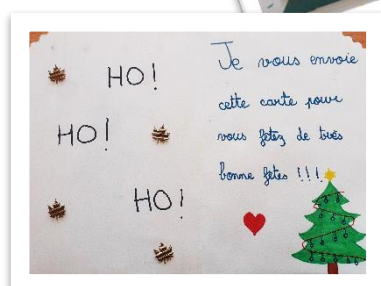 HO!
HO!
HO!
Je vous envoie
cette carte pour
vous fêtez de très
bonne fêtes !!!